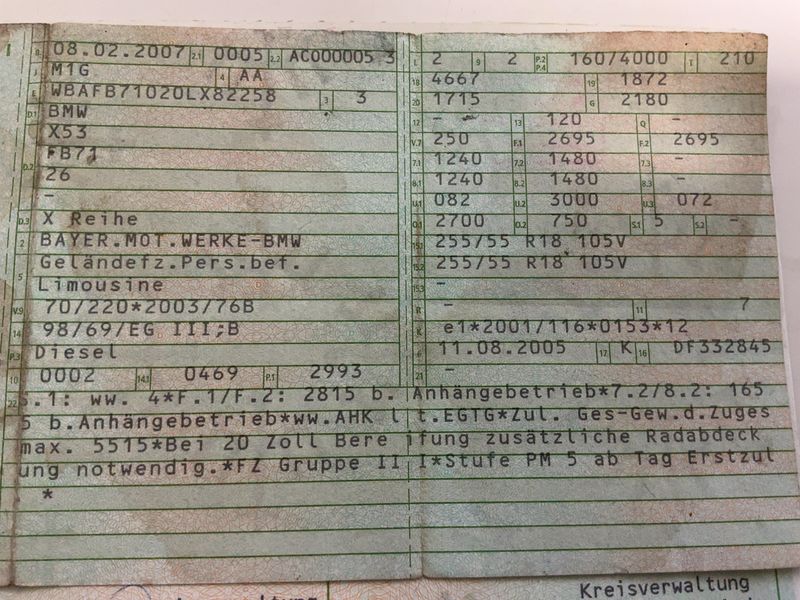 B 08.02.2007 2.1 0005 2.2 AC000005 3
J M1G 4 AA
E WBAFB71020LX82258 3 3
D.1 BMW
X53
FB71
D.2 26
-
D.3 X Reihe
2 BAYER.MOT.WERKE-BMW
Geländefz.Pers.bef.
5 Limousine
V.9 70/220*2003/76B
14 98/69/EG III;B
P.3 Diesel
10 0002 14.1 0469 P.1 2993
L 2 9 2 P.2 P.4 160/4000 T 210
18 4667 19 1872
20 1715 G 2180
12 - 13 120 Q -
V.7 250 F.1 2695 F.2 2695
7.1 1240 7.2 1480 7.3 -
8.1 1240 8.2 1480 8.3 -
U.1 082 U.2 3000 U.3 072
O.1 2700 O.2 750 S.1 5 S.2 -
15.1 255/55 R18 105V
15.2 255/55 R18 105V
15.3 -
R - 11 7
K e1*2001/116*0153*12
6 11.08.2005 17 K 16 DF332845
21 -
22 S.1: ww. 4*F.1/F.2: 2815 b. Anhängebetrieb*7.2/8.2: 165
5 b.Anhängebetrieb*ww.AHK lt.EGTG*Zul. Ges-Gew.d.Zuges
max. 5515*Bei 20 Zoll Bereifung zusätzliche Radabdeck
ung notwendig.*FZ Gruppe III*Stufe PM 5 ab Tag Erstzul
*
Kreisverwaltung